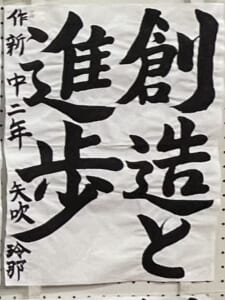 創造と
進歩
作新 中二年 矢吹 玲那